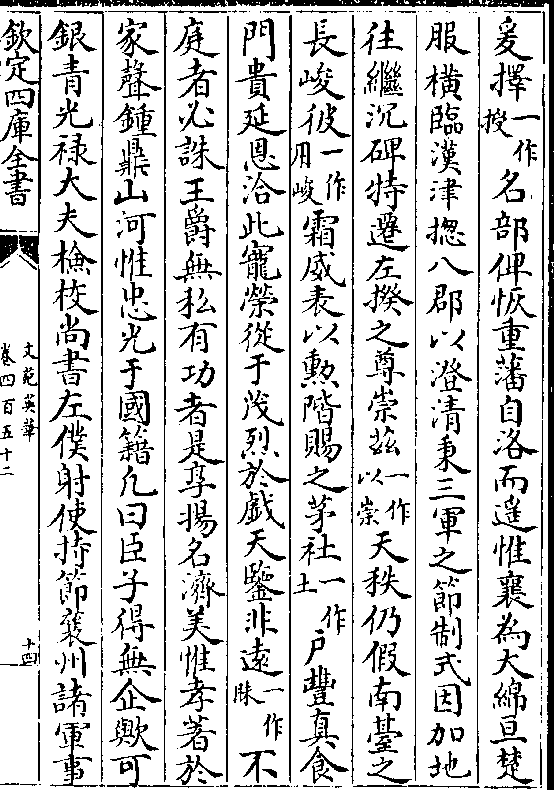 爰擇一作授名部俾恢重藩自洛而遥惟襄為大綿亘楚
服横臨漢津揔八郡以澄清秉三軍之節制式因加地
往繼沉碑特遷左揆之尊崇茲一作以崇天秩仍假南臺之
長峻彼一作用峻霜威表以勲階賜之茅社一作土户豐真食
門貴延恩洽此寵榮從于茂烈於戲天鑒非遠一作昧不
庭者必誅王爵無私有功者是享揚名濟美惟孝著於
家聲鍾鼎山河惟忠光于國籍凡曰臣子得無企歟可
銀青光禄大夫檢校尚書左僕射使持節襄州諸軍事
欽定四庫全書
文苑英華
卷四百五十二
十四